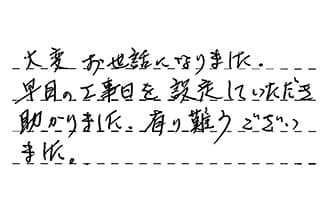 大変お世話になりました。
早目の工事日を設定していただき
助かりました。有り難うござい
ました。